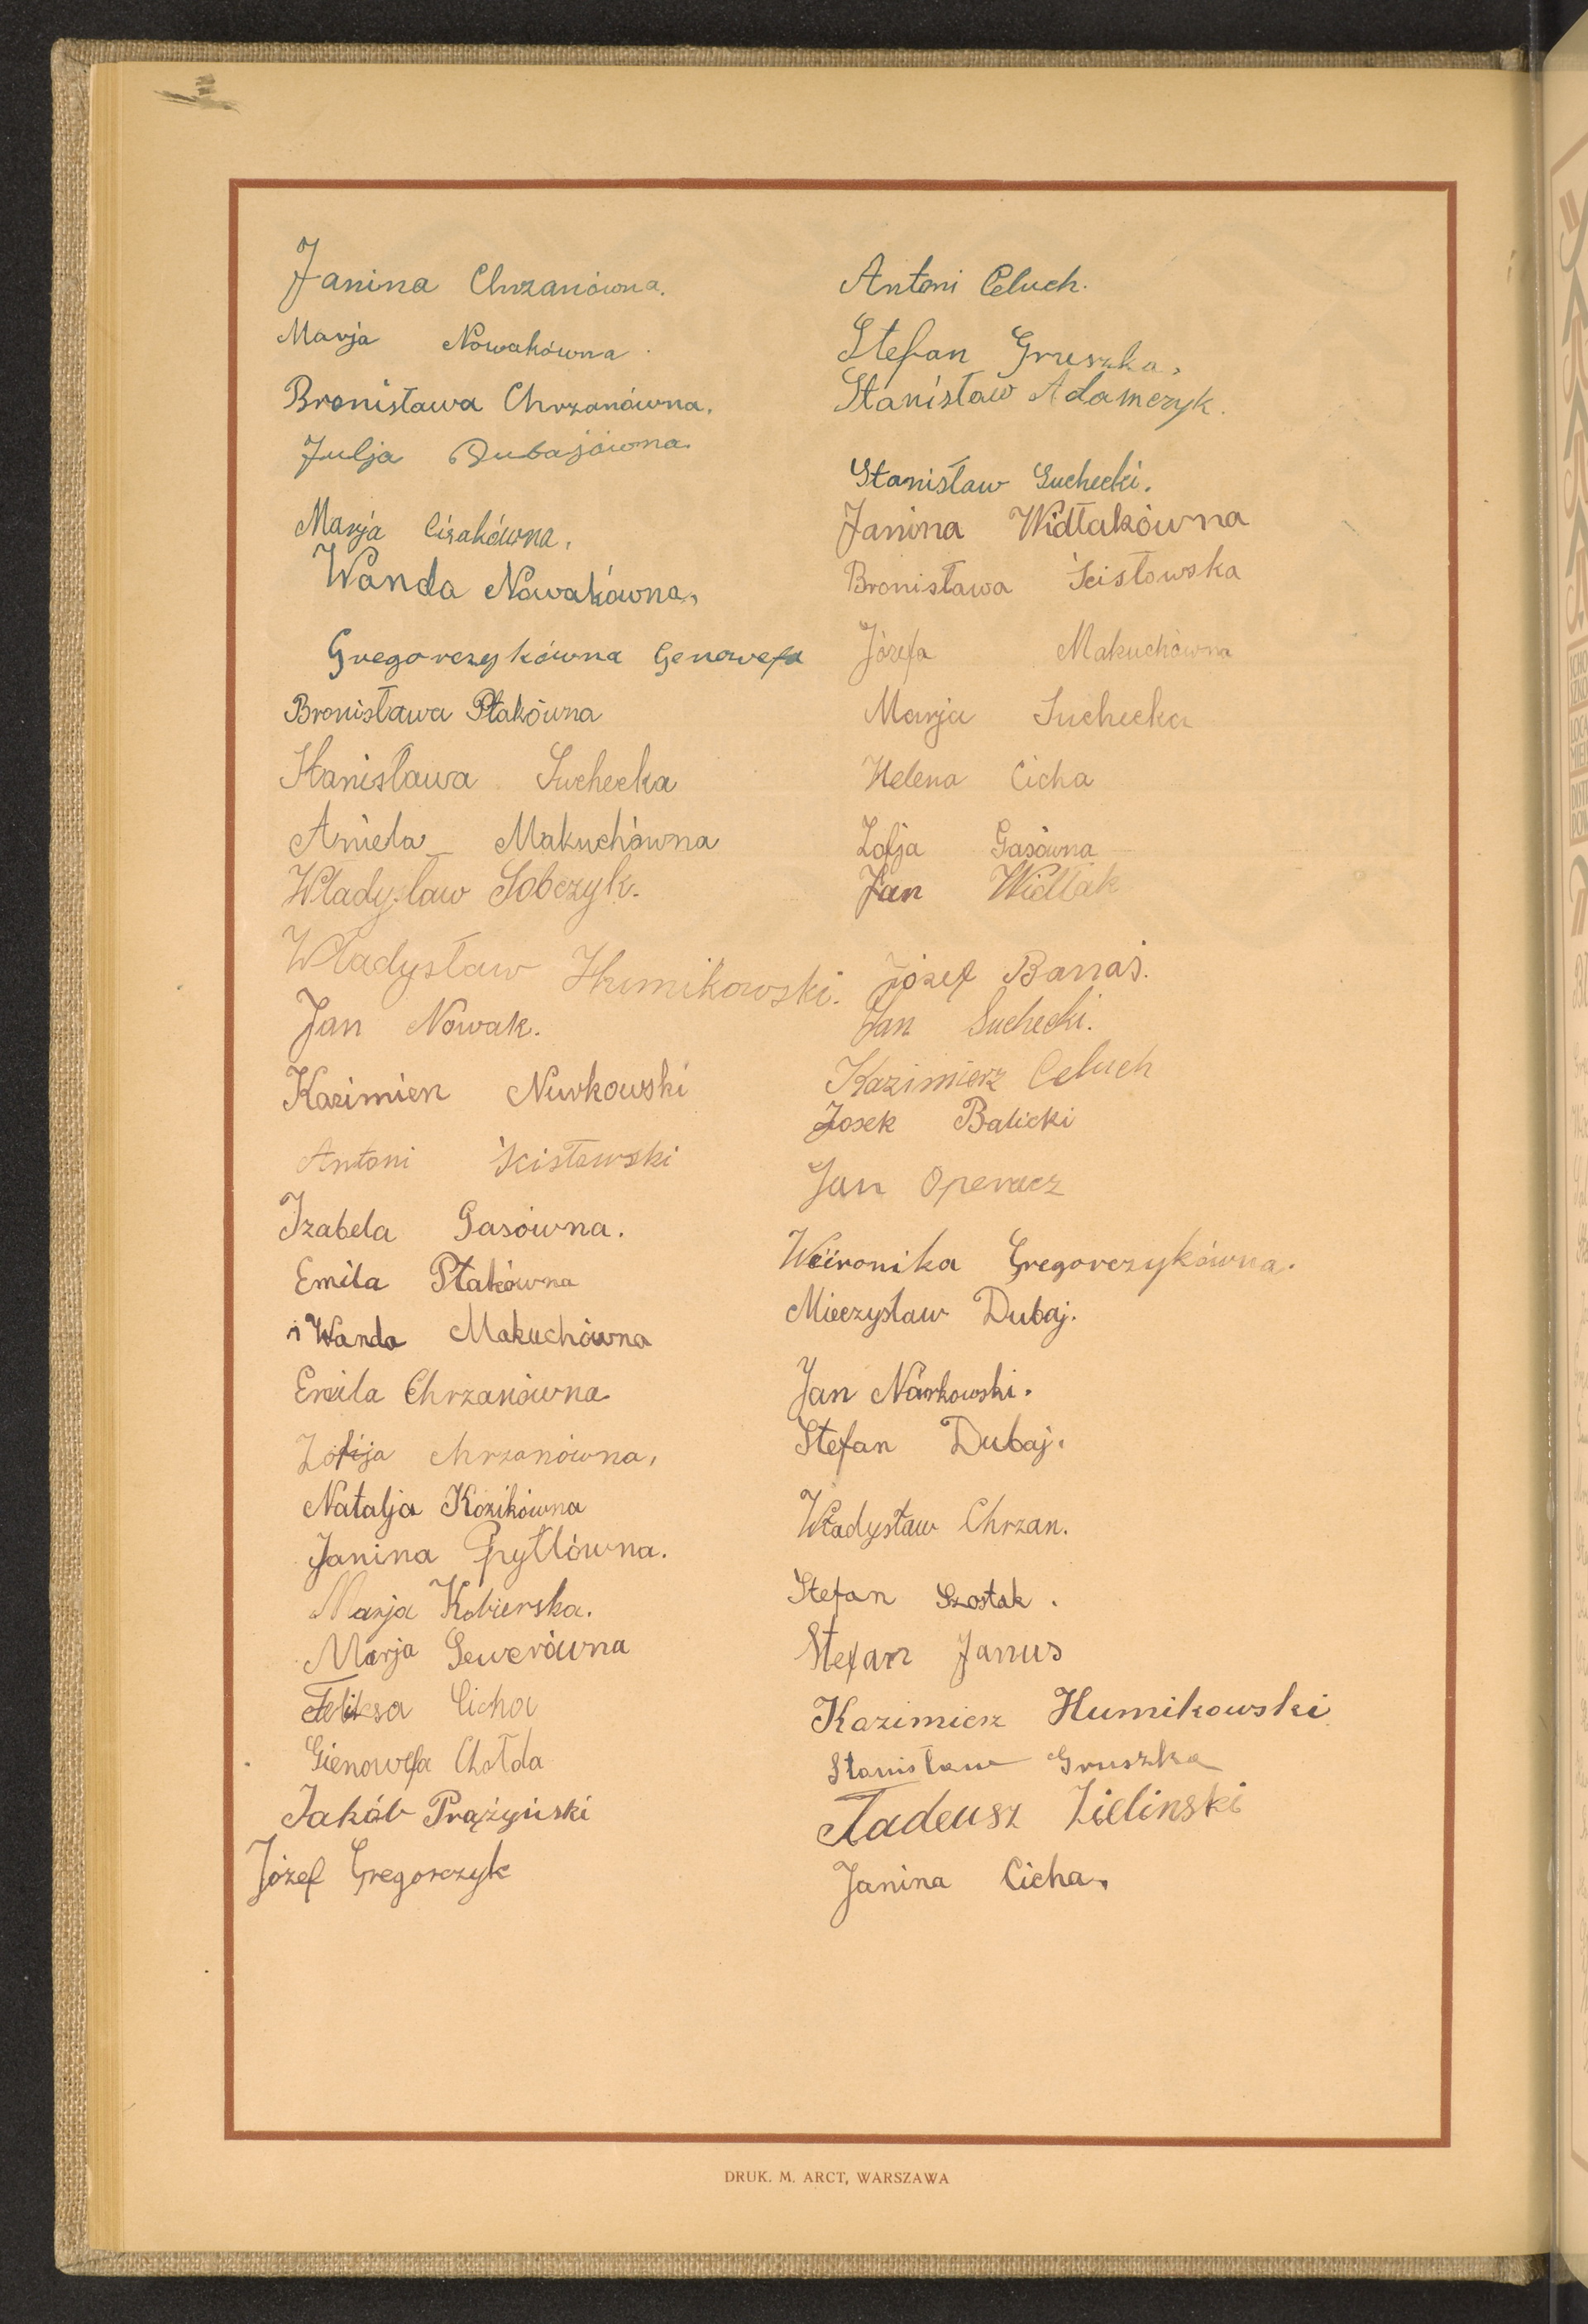 Janina Chrzanówna.
Marja Nowakówna.
Bronisława Chrzanówna.
Julja Dubajówna.
Marja Cisakówna.
Wanda Nowakówna,
Gregorczykówna Genowefa
Bronisława Ptakówna
Stanisława Suchecka
Aniela Makuchówna
Władysław Sobczyk.
Władysław Humikowski.
Jan Nowak.
Kazimierz Nurkowski
Antoni Ścisłowski
Izabela Gasówna.
Emila Ptakówna
Wanda Makuchówna
Emila Chrzanówna
Zofija Chrzanówna,
Natalja Kozikówna
Janina Pytlówna.
Marja Kobierska.
Marja Sewerówna
Feliksa Cicha
Gienowefa Chołda
Jakób Prażyński
Józef Gregorczyk
Antoni Celuch.
Stefan Gruszka,
Stanisław Adamczyk.
Stanisław Suchecki.
Janina Widłakówna
Bronisława Ścisłowska
Józefa Makuchówna
Marja Suchecka
Helena Cicha
Zofja Gasówna
Jan Widłak
Józef Banaś.
Jan Suchecki.
Kazimierz Celuch
Josek Balicki
Jan Operacz
Weronika Gregorczykówna.
Mieczysław Dubaj.
Jan Narkowski.
Stefan Dubaj.
Władysław Chrzan.
Stefan Szostak.
Stefan Janus
Kazimierz Humikowski
Stanisław Gruszka
Tadeusz Zielinski
Janina Cicha.
DRUK. M. ARCT, WARSZAWA